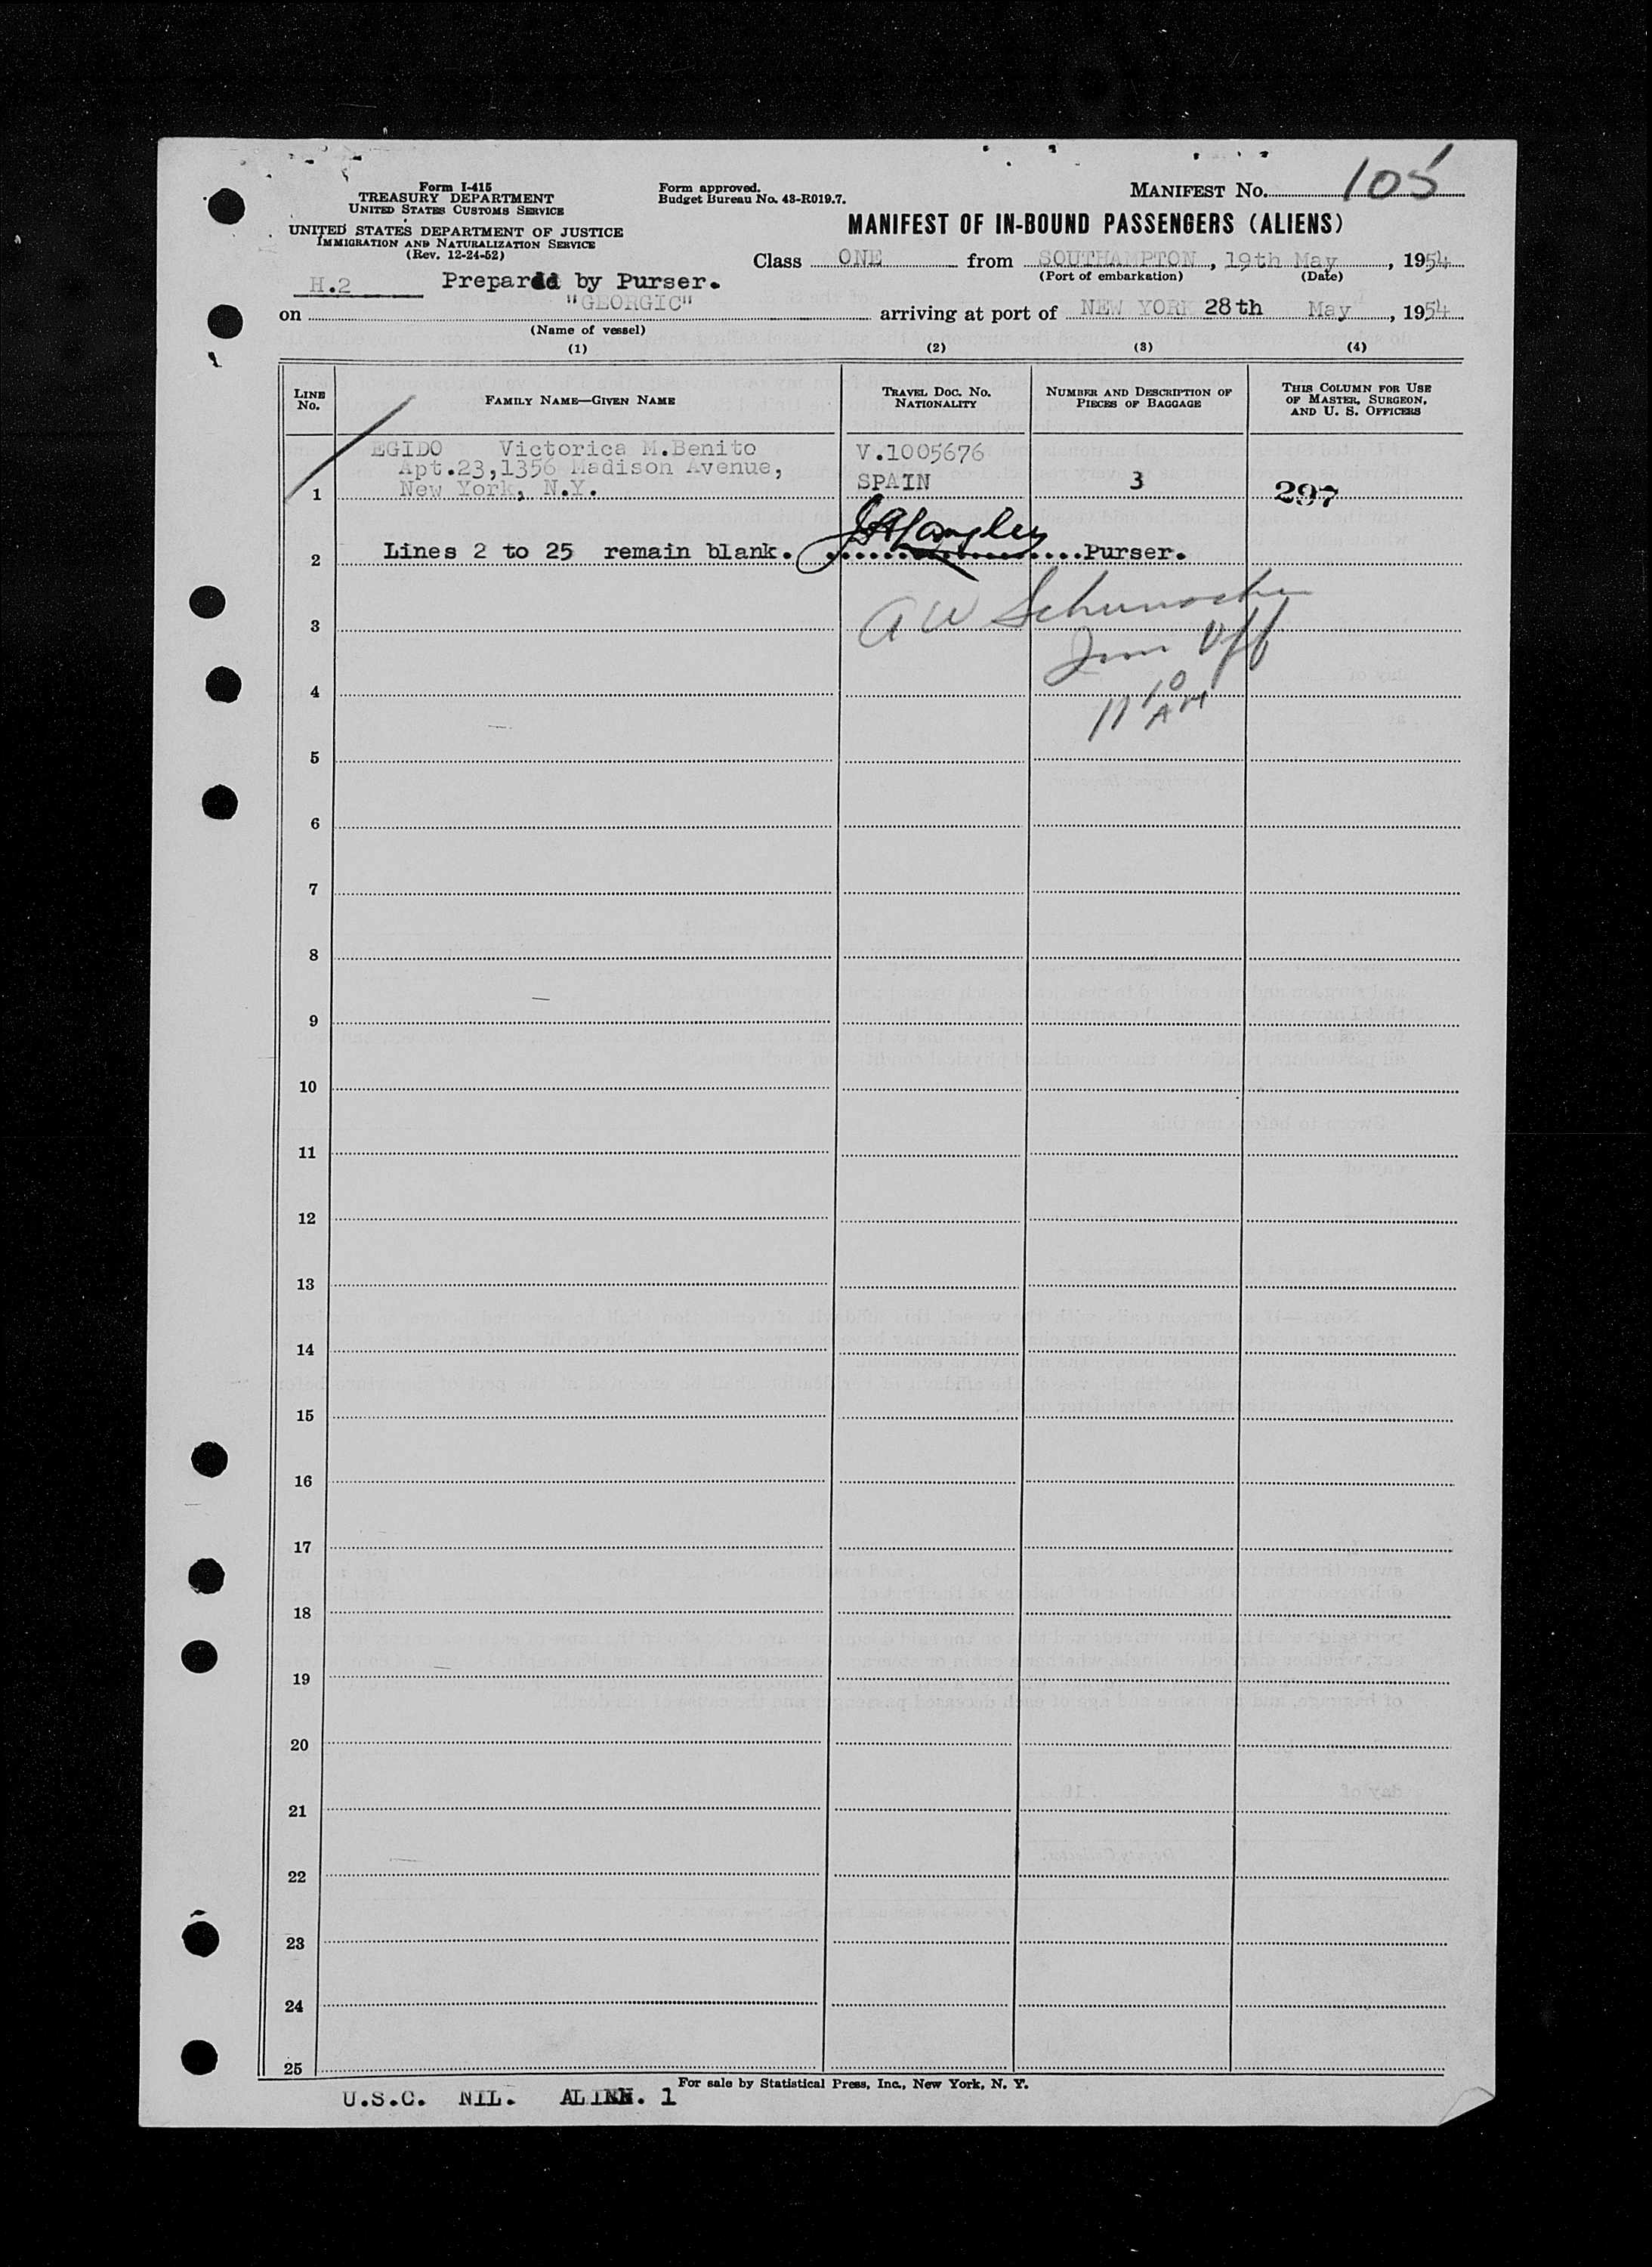 Form I-415
TREASURY DEPARTMENT
UNITED STATES CUSTOMS SERVICE
UNITED STATES DEPARTMENT OF JUSTICE
IMMIGRATION AND NATURALIZATION SERVICE
(Rev. 12-24-52)
Form approved.
Budget Bureau No. 43-R019.7.
MANIFEST NO. 105
MANIFEST OF IN-BOUND PASSENGERS (ALIENS)
Class ONE from SOUTHAMPTON, 19th May, 1954
(Port of embarkation) (Date)
H.2 Prepared by Purser.
on "GEORGIC" arriving at port of NEW YORK 28th May, 1954
(Name of vessel)
(1) (2) (3) (4)
LINE NO. FAMILY NAME—GIVEN NAME TRAVEL DOC. NO. NATIONALITY NUMBER AND DESCRIPTION OF PIECES OF BAGGAGE THIS COLUMN FOR USE OF MASTER, SURGEON, AND U. S. OFFICERS
EGIDO Victorica M.Benito V.1005676
Apt.23,1356 Madison Avenue,
1 New York, N.Y. SPAIN 3 297
2 Lines 2 to 25 remain blank. Purser.
A W Schumacher
3
Imm Off
4
11 10 AM
5
6
7
8
9
10
11
12
13
14
15
16
17
18
19
20
21
22
23
24
25
For sale by Statistical Press, Inc., New York, N. Y.
U.S.C. NIL. ALIEN. 1